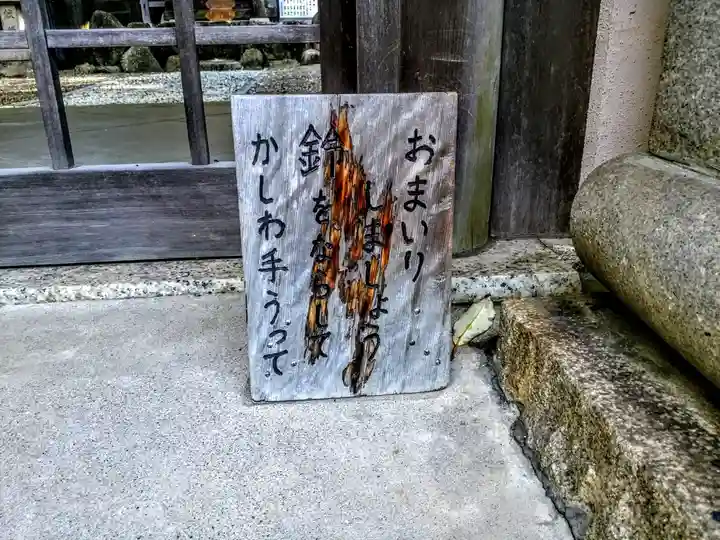 おまいり
しましょう
鈴をならして
かしわ手うって